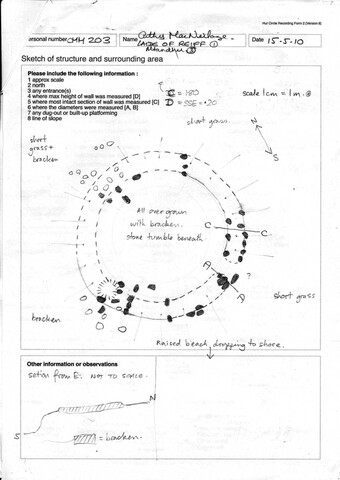 Hut Circle Recording Form 2 (Version 6)
ersonal number CMH 203
Name Cathy MacNarlage.
LAIDE OF REIFF ①
Altandhu ②
Date 15-5-10
Sketch of structure and surrounding area
Please include the following information :
1 approx scale
2 north
3 any entrance(s)
4 where max height of wall was measured [D]
5 where most intact section of wall was measured [C]
6 where the diameters were measured [A, B]
7 any dug-out or built-up platforming
8 line of slope
C = 180
D = SSE = .20
scale 1cm = 1m.
short grass.
N
S
short
grass +
bracken
All over grown
with bracken.
stone tumble beneath
C
C
A
A
?
short grass
bracken.
Raised beach, dropping to shore.
Other information or observations
section from E: NOT TO SCALE.
N
S
= bracken.